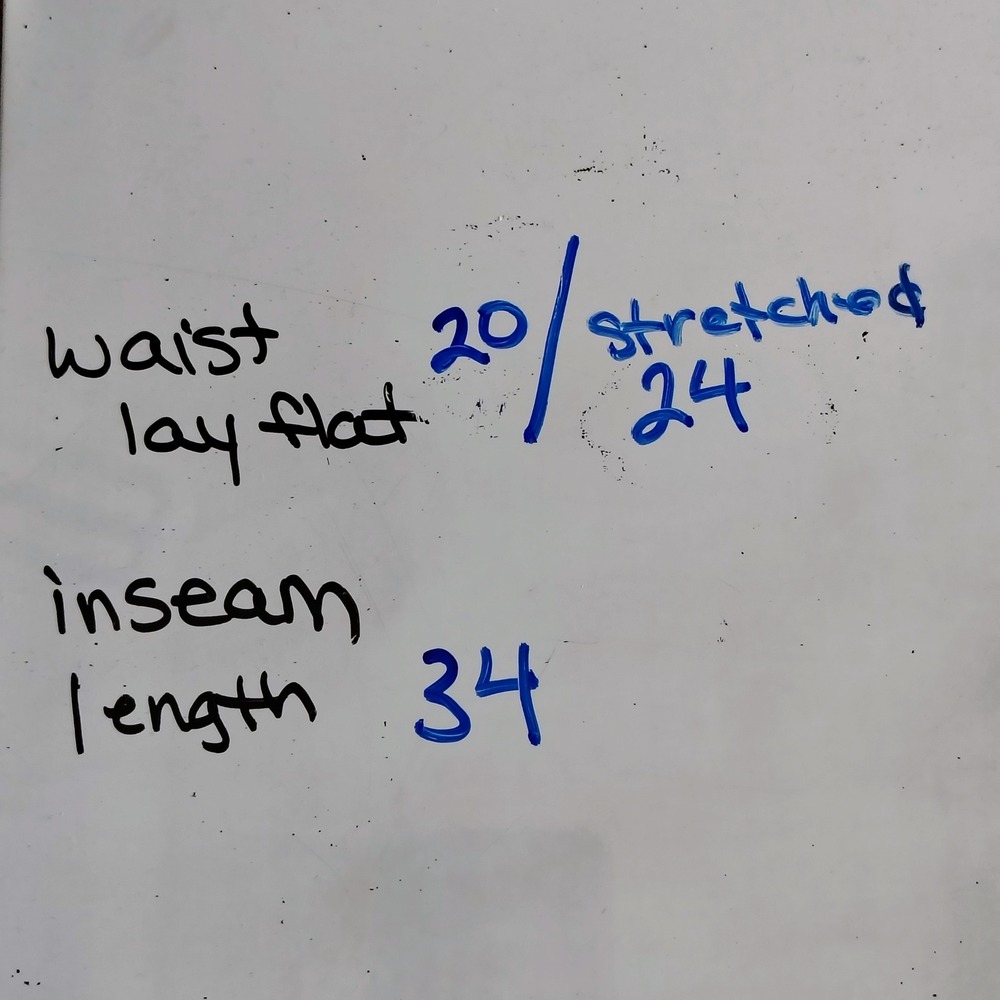 waist 20 / stretched
lay flat 24
inseam
length 34